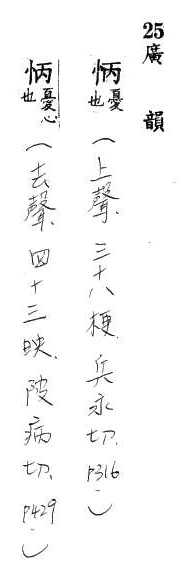 25廣韻
怲憂也（上聲、三十八梗、兵永切、P316。）
怲憂心也（去聲、四十三映、陂病切、P429。）